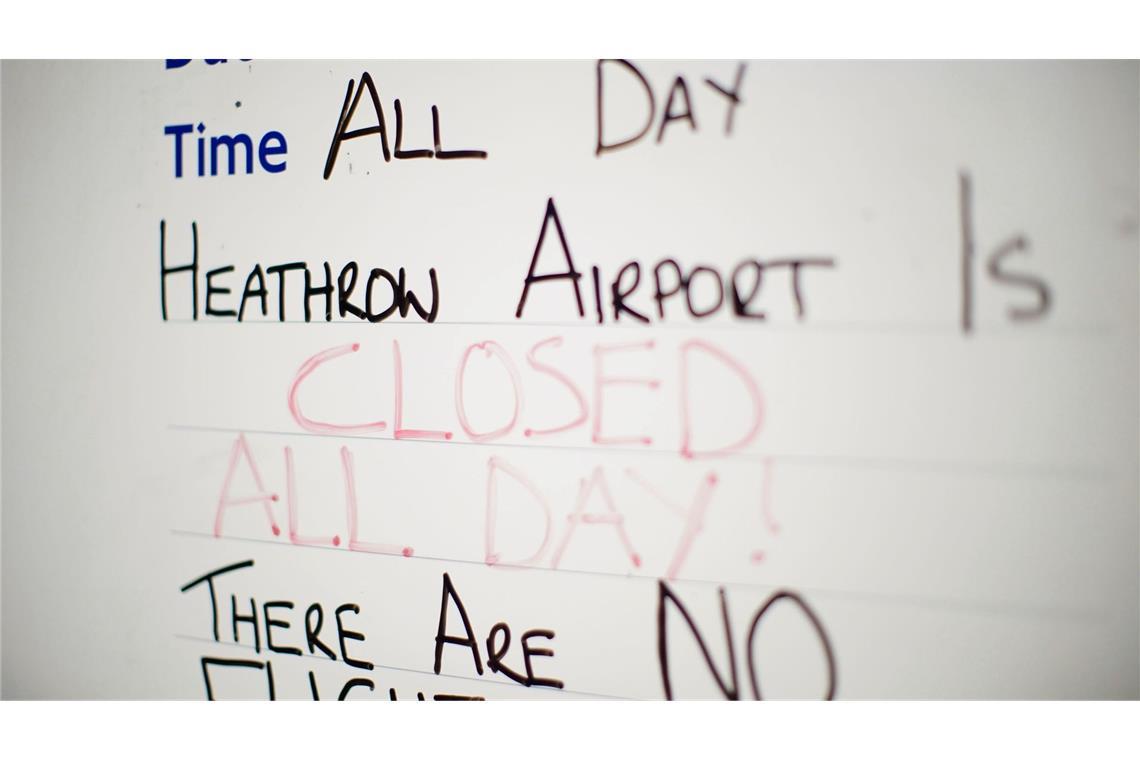 Time ALL DAY
HEATHROW AIRPORT IS
CLOSED
ALL DAY!
THERE ARE NO